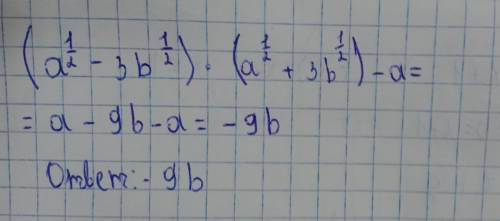 (a^{1/2} - 3b^{1/2}) · (a^{1/2} + 3b^{1/2}) - a =
= a - 9b - a = - 9b
Ответ: - 9b